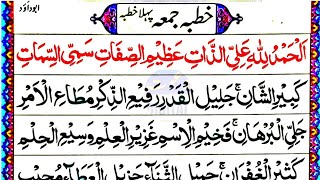 ابوداؤد
خطبہ جمعہ پہلا خطبہ
اَلْحَمْدُ لِلّٰهِ عَلِيِّ الذَّاتِ عَظِيْمِ الصِّفَاتِ سَمِيِّ السِّمَاتِ
كَبِيْرِ الشَّانِ جَلِيْلِ الْقَدْرِ رَفِيْعِ الذِّكْرِ مُطَاعِ الْاَمْرِ
جَلِيِّ الْبُرْهَانِ فَخِيْمِ الْاِسْمِ غَزِيْرِ الْعِلْمِ وَسِيْعِ الْحِلْمِ
كَثِيْرِ الْغُفْرَانِ جَمِيْلِ الثَّنَآءِ جَزِيْلِ الْعَطَآءِ مُجِيْبِ